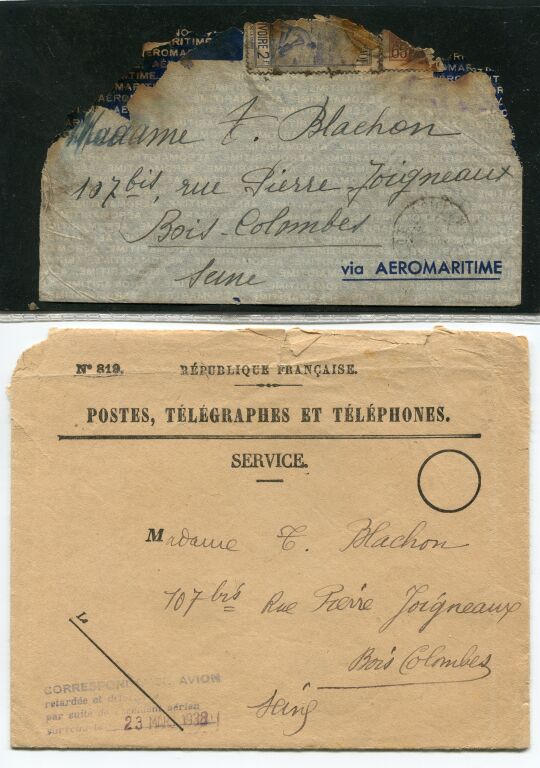 AEROMARITIME
IVOIRE 2
65
Madame T. Blachon
107 bis, rue Pierre Joigneaux
Bois-Colombes
Seine
via AEROMARITIME
N° 819.
RÉPUBLIQUE FRANÇAISE.
POSTES, TÉLÉGRAPHES ET TÉLÉPHONES.
SERVICE.
Madame T. Blachon
107 bis Rue Pierre Joigneaux
Bois Colombes
Seine
Le
AVION
retardée et
par suite aérien
23 1938